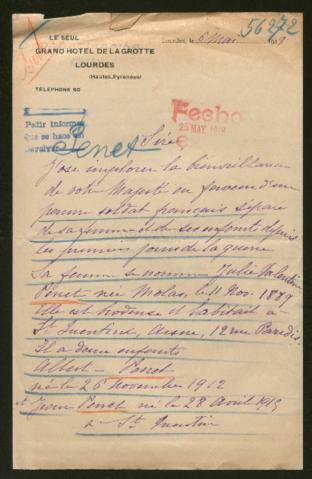 56272
LE SEUL
GRAND HOTEL DE LA GROTTE
LOURDES
(Hautes-Pyrénées)
TELEPHONE 50
Lourdes, le 6 Mai 1918
Fecho
25 MAY. 1918
Pedir informes
Que se hace en
Penet
Sire
J'ose implorer la bienveillance
de votre Majesté en faveur d'un
pauvre soldat français séparé
de sa femme et de ses enfants depuis
les premiers jours de la guerre
Sa femme se nomme Julie Valentine
Penet née Molas, le 11 Nov. 1889
Elle est brodeuse et habitait à
St Quentin, Aisne, 12 rue Paradis.
Il a deux enfants
Albert Penet
né le 26 Novembre 1912
et Jean Penet né le 28 Avril 1915
à St Quentin